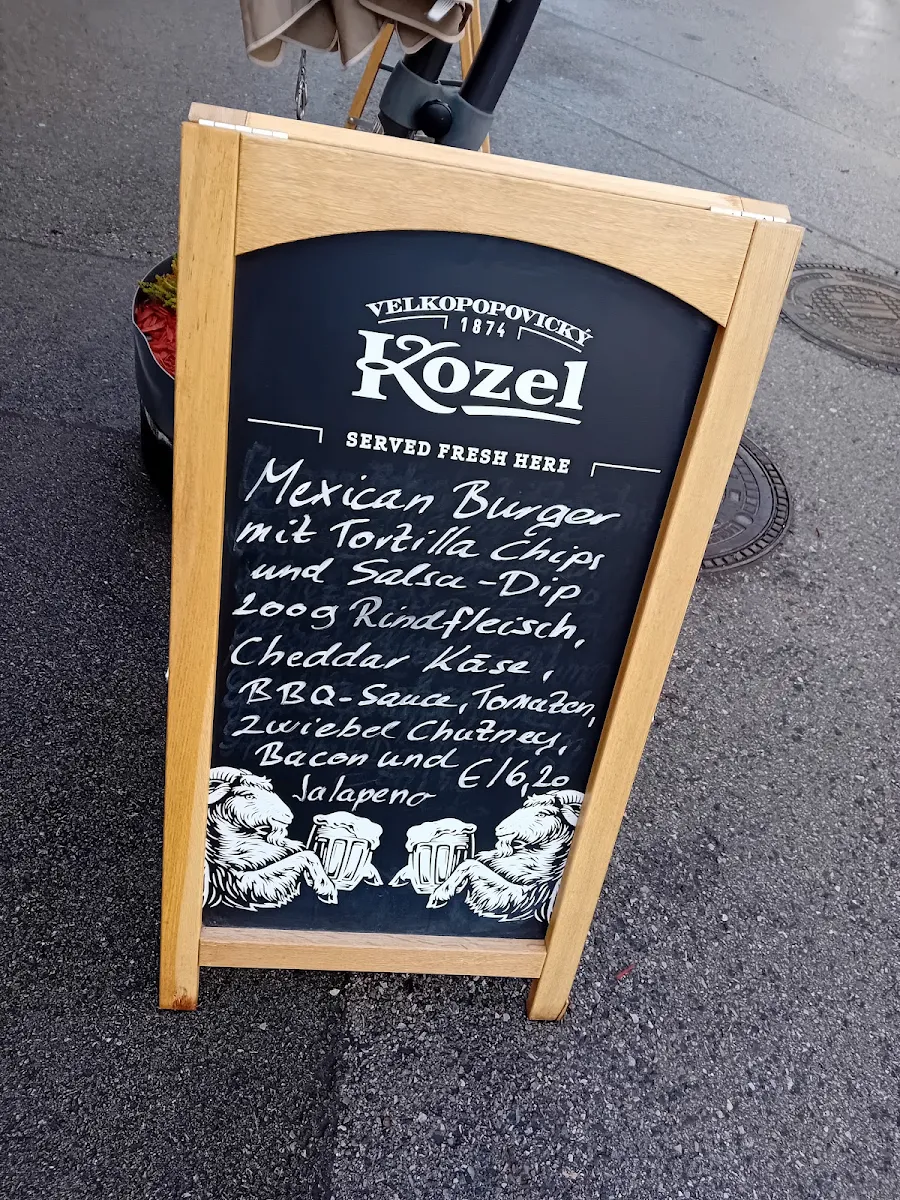 VELKOPOPOVICKÝ
1874
Kozel
SERVED FRESH HERE
Mexican Burger
mit Tortilla Chips
und Salsa-Dip
200g Rindfleisch,
Cheddar Käse,
BBQ-Sauce, Tomaten,
Zwiebel Chutney,
Bacon und
Jalapeno € 16,20